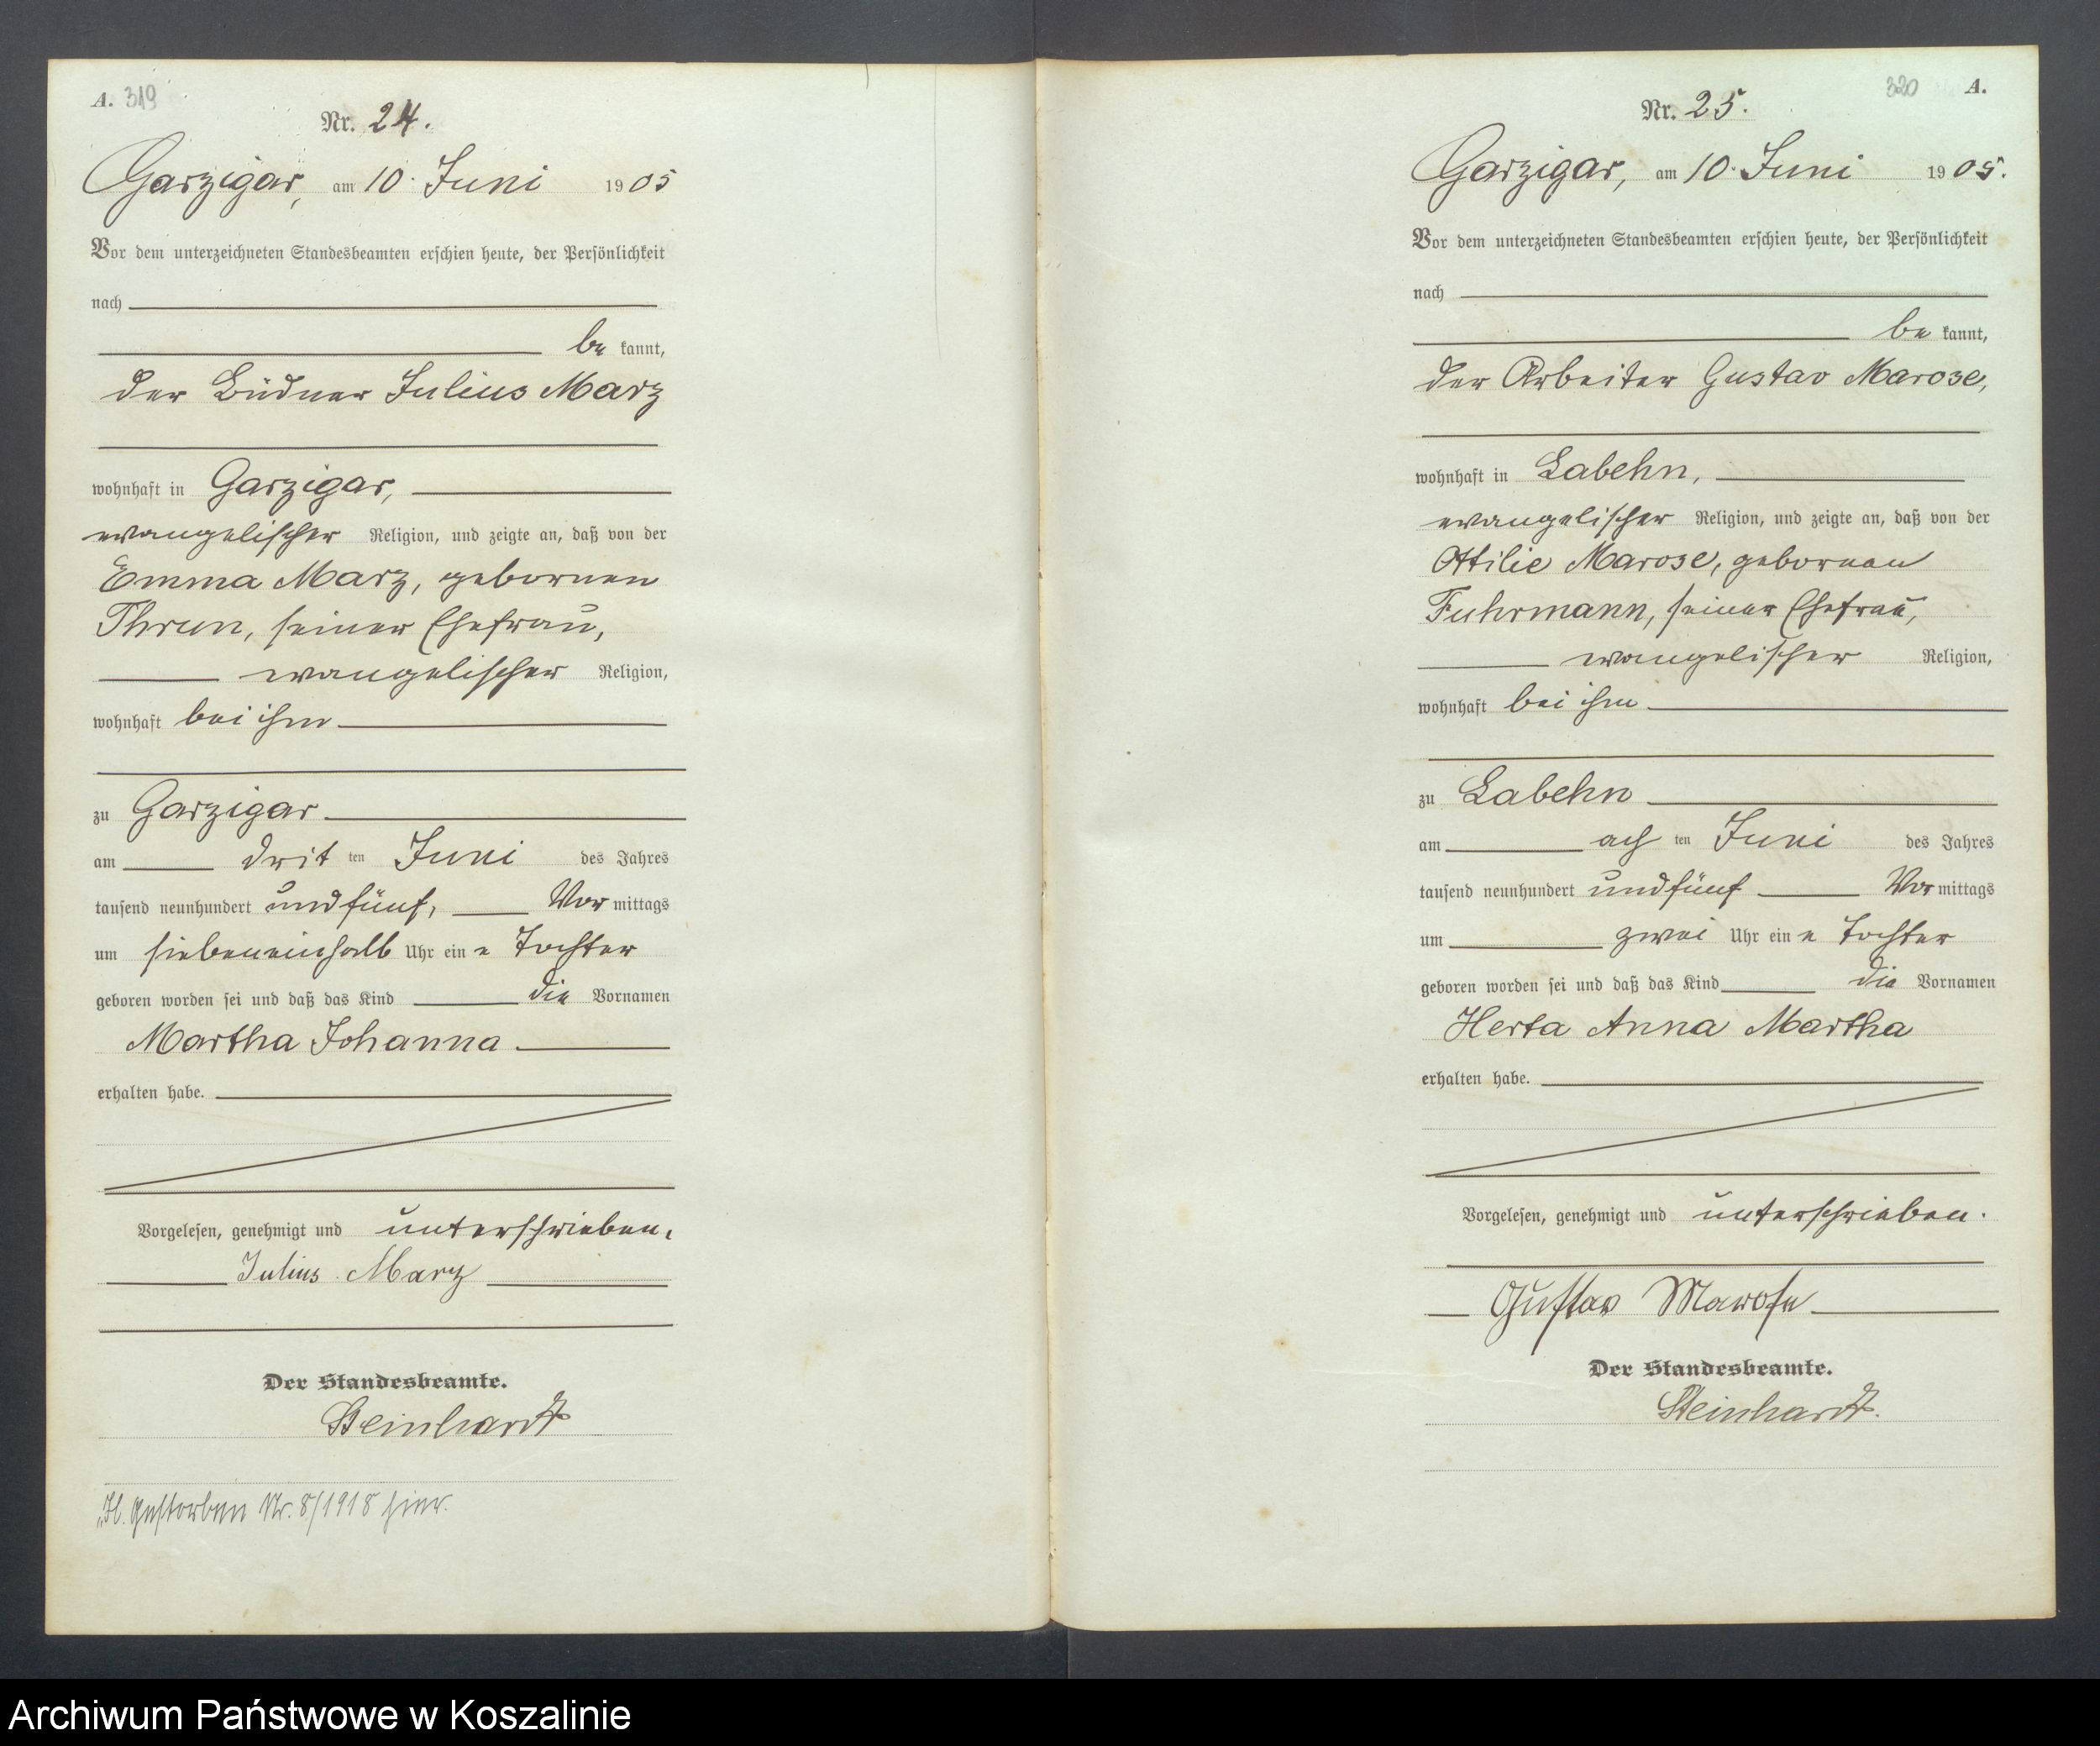 A. 319
Nr. 24.
Garzigar, am 10. Juni 1905
Vor dem unterzeichneten Standesbeamten erschien heute, der Persönlichkeit
nach
be kannt,
der Büdner Julius Marz
wohnhaft in Garzigar,
evangelischer Religion, und zeigte an, daß von der
Emma Marz, gebornen
Thrun, seiner Ehefrau,
evangelischer Religion,
wohnhaft bei ihm
zu Garzigar
am drit ten Juni des Jahres
tausend neunhundert und fünf, Vor mittags
um siebeneinhalb Uhr ein e Tochter
geboren worden sei und daß das Kind die Vornamen
Martha Johanna
erhalten habe.
Vorgelesen, genehmigt und unterschrieben.
Julius Marz
Der Standesbeamte.
Steinhardt
Gestorben Nr. 8/1918 hier.
320 A.
Nr. 25.
Garzigar, am 10. Juni 1905.
Vor dem unterzeichneten Standesbeamten erschien heute, der Persönlichkeit
nach
be kannt,
der Arbeiter Gustav Marose,
wohnhaft in Labehn,
evangelischer Religion, und zeigte an, daß von der
Ottilie Marose, gebornen
Fuhrmann, seiner Ehefrau,
evangelischer Religion,
wohnhaft bei ihm
zu Labehn
am ach ten Juni des Jahres
tausend neunhundert und fünf Vor mittags
um zwei Uhr ein e Tochter
geboren worden sei und daß das Kind die Vornamen
Herta Anna Martha
erhalten habe.
Vorgelesen, genehmigt und unterschrieben.
Gustav Marose
Der Standesbeamte.
Steinhardt.
Archiwum Państwowe w Koszalinie